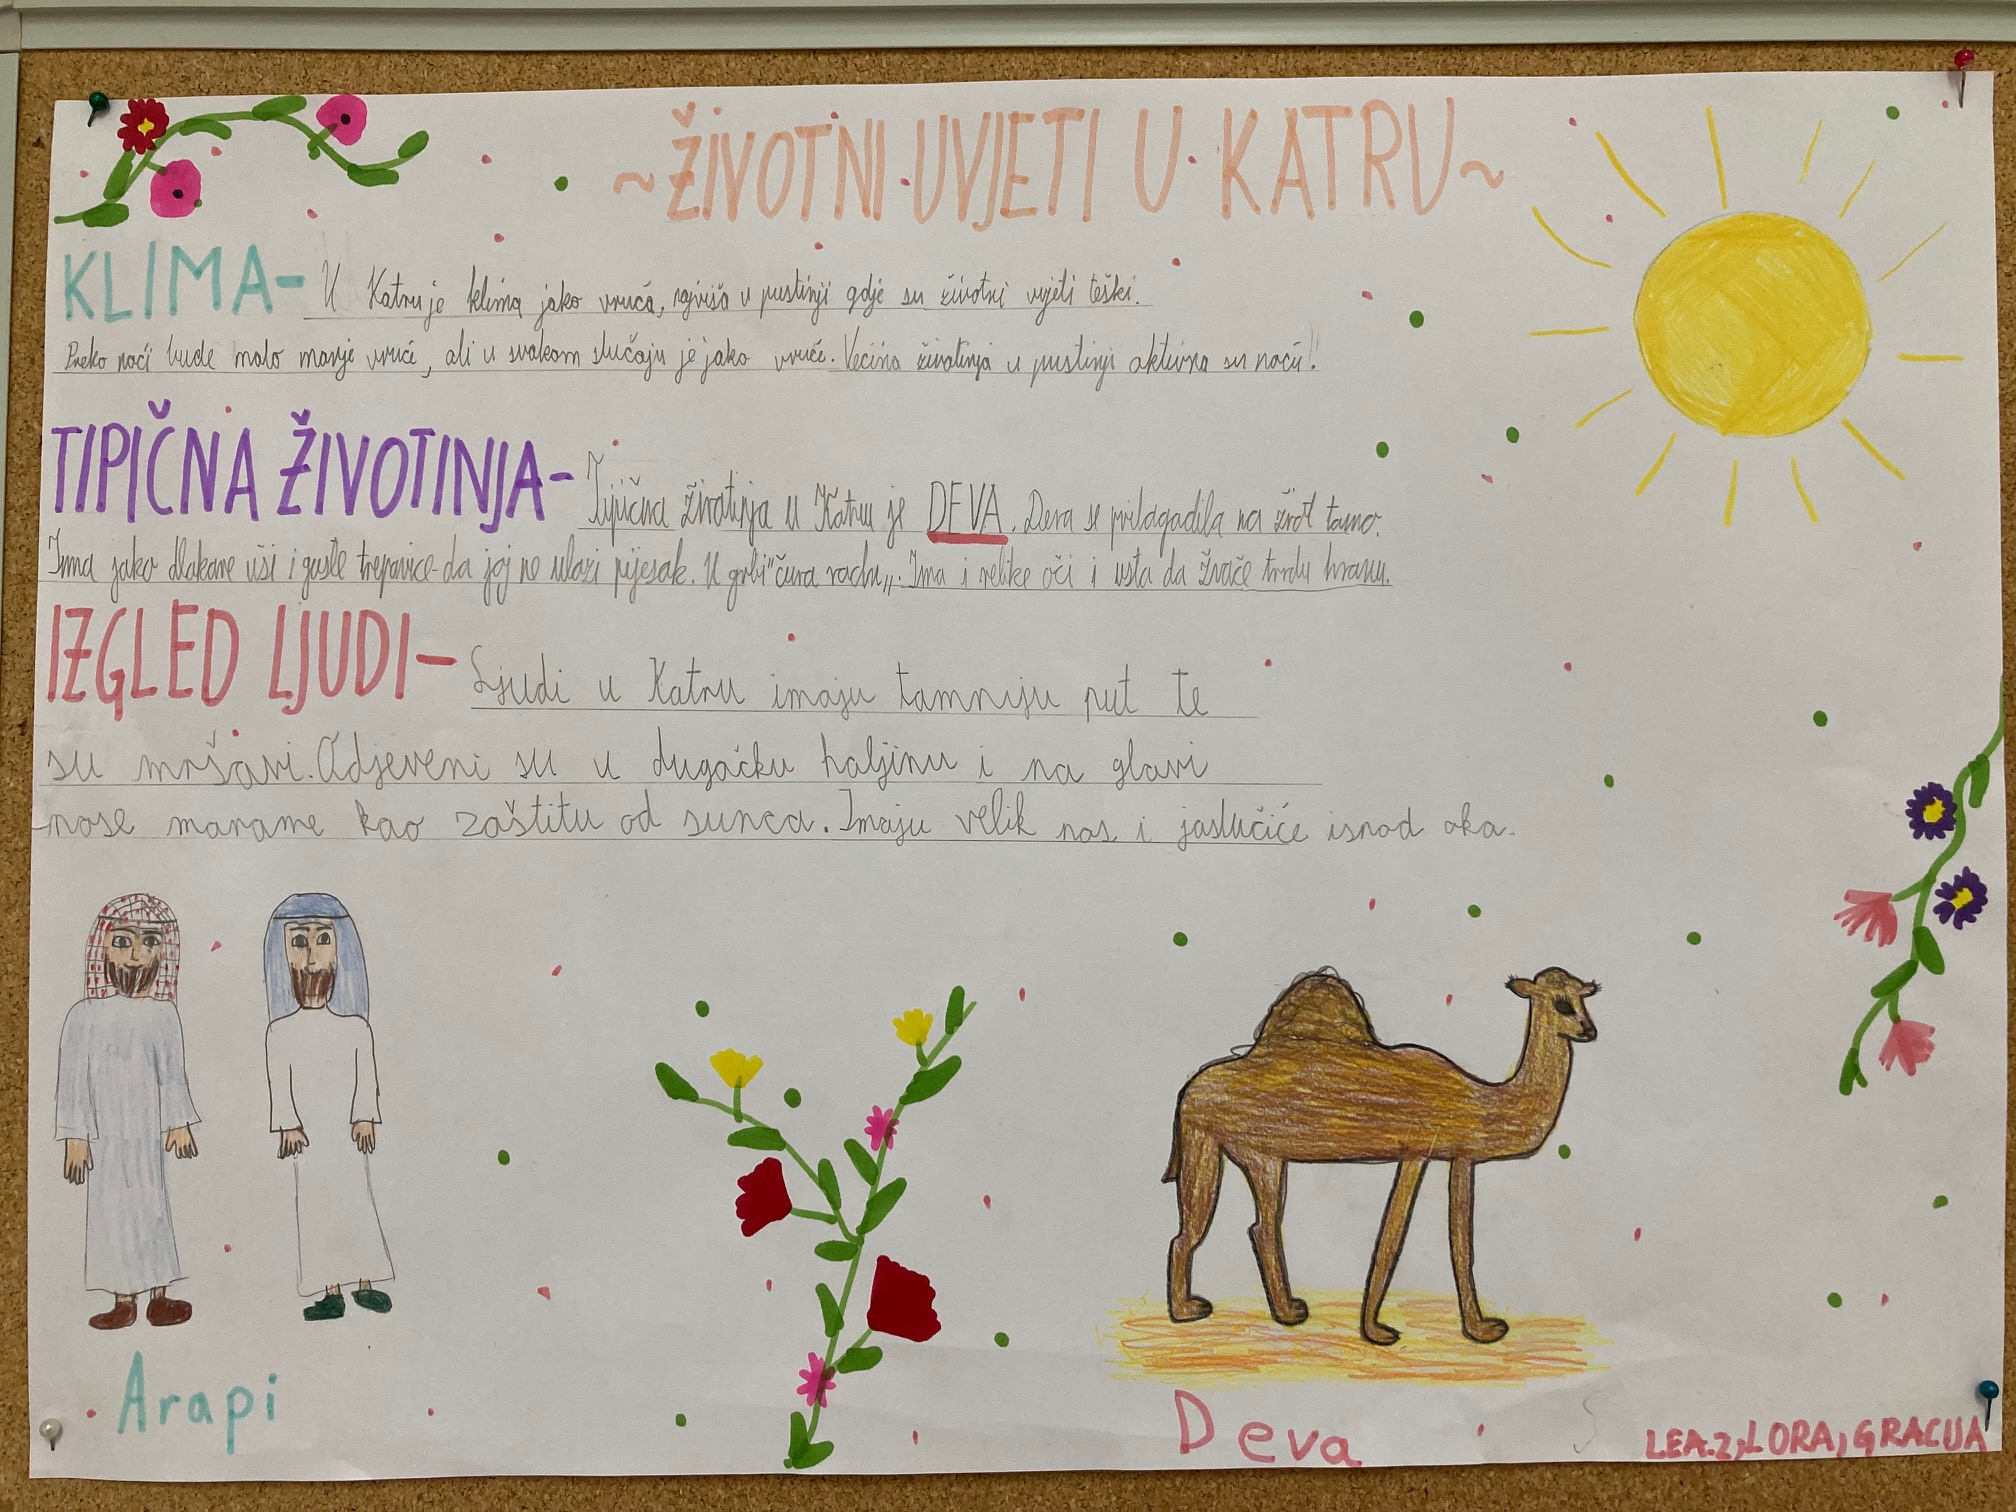 ~ŽIVOTNI UVJETI U KATRU~
KLIMA- U Katru je klima jako vruća, najviša u pustinji gdje su životni uvjeti teški.
Preko noći bude malo manje vruće, ali u svakom slučaju je jako vruće. Većina životinja u pustinji aktivna su noću!
TIPIČNA ŽIVOTINJA- Tipična životinja u Katru je DEVA. Deva se prilagadila na život tamo.
Ima jako dlakave uši i guste trepavice da joj ne ulazi pijesak. U grbi "čuva vodu„. Ima i velike oči i usta da žvače tvrdu hranu.
IZGLED LJUDI- Ljudi u Katru imaju tamniju put te
su mršavi. Odjeveni su u dugačku haljinu i na glavi
nose marame kao zaštitu od sunca. Imaju velik nos i jastučiće ispod oka.
Arapi
Deva
LEA.Z, LORA, GRACIJA